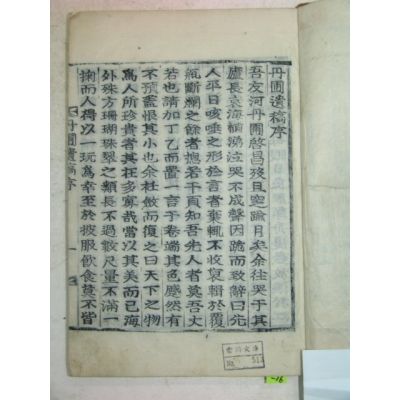 丹圃遺稿序
吾友河丹圃啓昌歿且踰月矣余往哭于其
廬長哀海橫湧泣哭不成聲因跪而致辭曰先
人平日咳唾之形於言者棄輒不收裒輯於覆
瓿斷爛之餘者摠若干頁知吾先人者莫吾丈
若也請加丁乙而置一言于卷端其色慼然有
不預盖恨其小也余杜斂而復之曰天下之物
爲人所珍貴者其在多寡哉當以其美而已海
外殊方珊瑚珠翠之類長不過數尺量不滿一
掬而人得以一玩爲幸至於被服飮食荳不皆
丹圃遺稿序
一
文庫
No.
-16